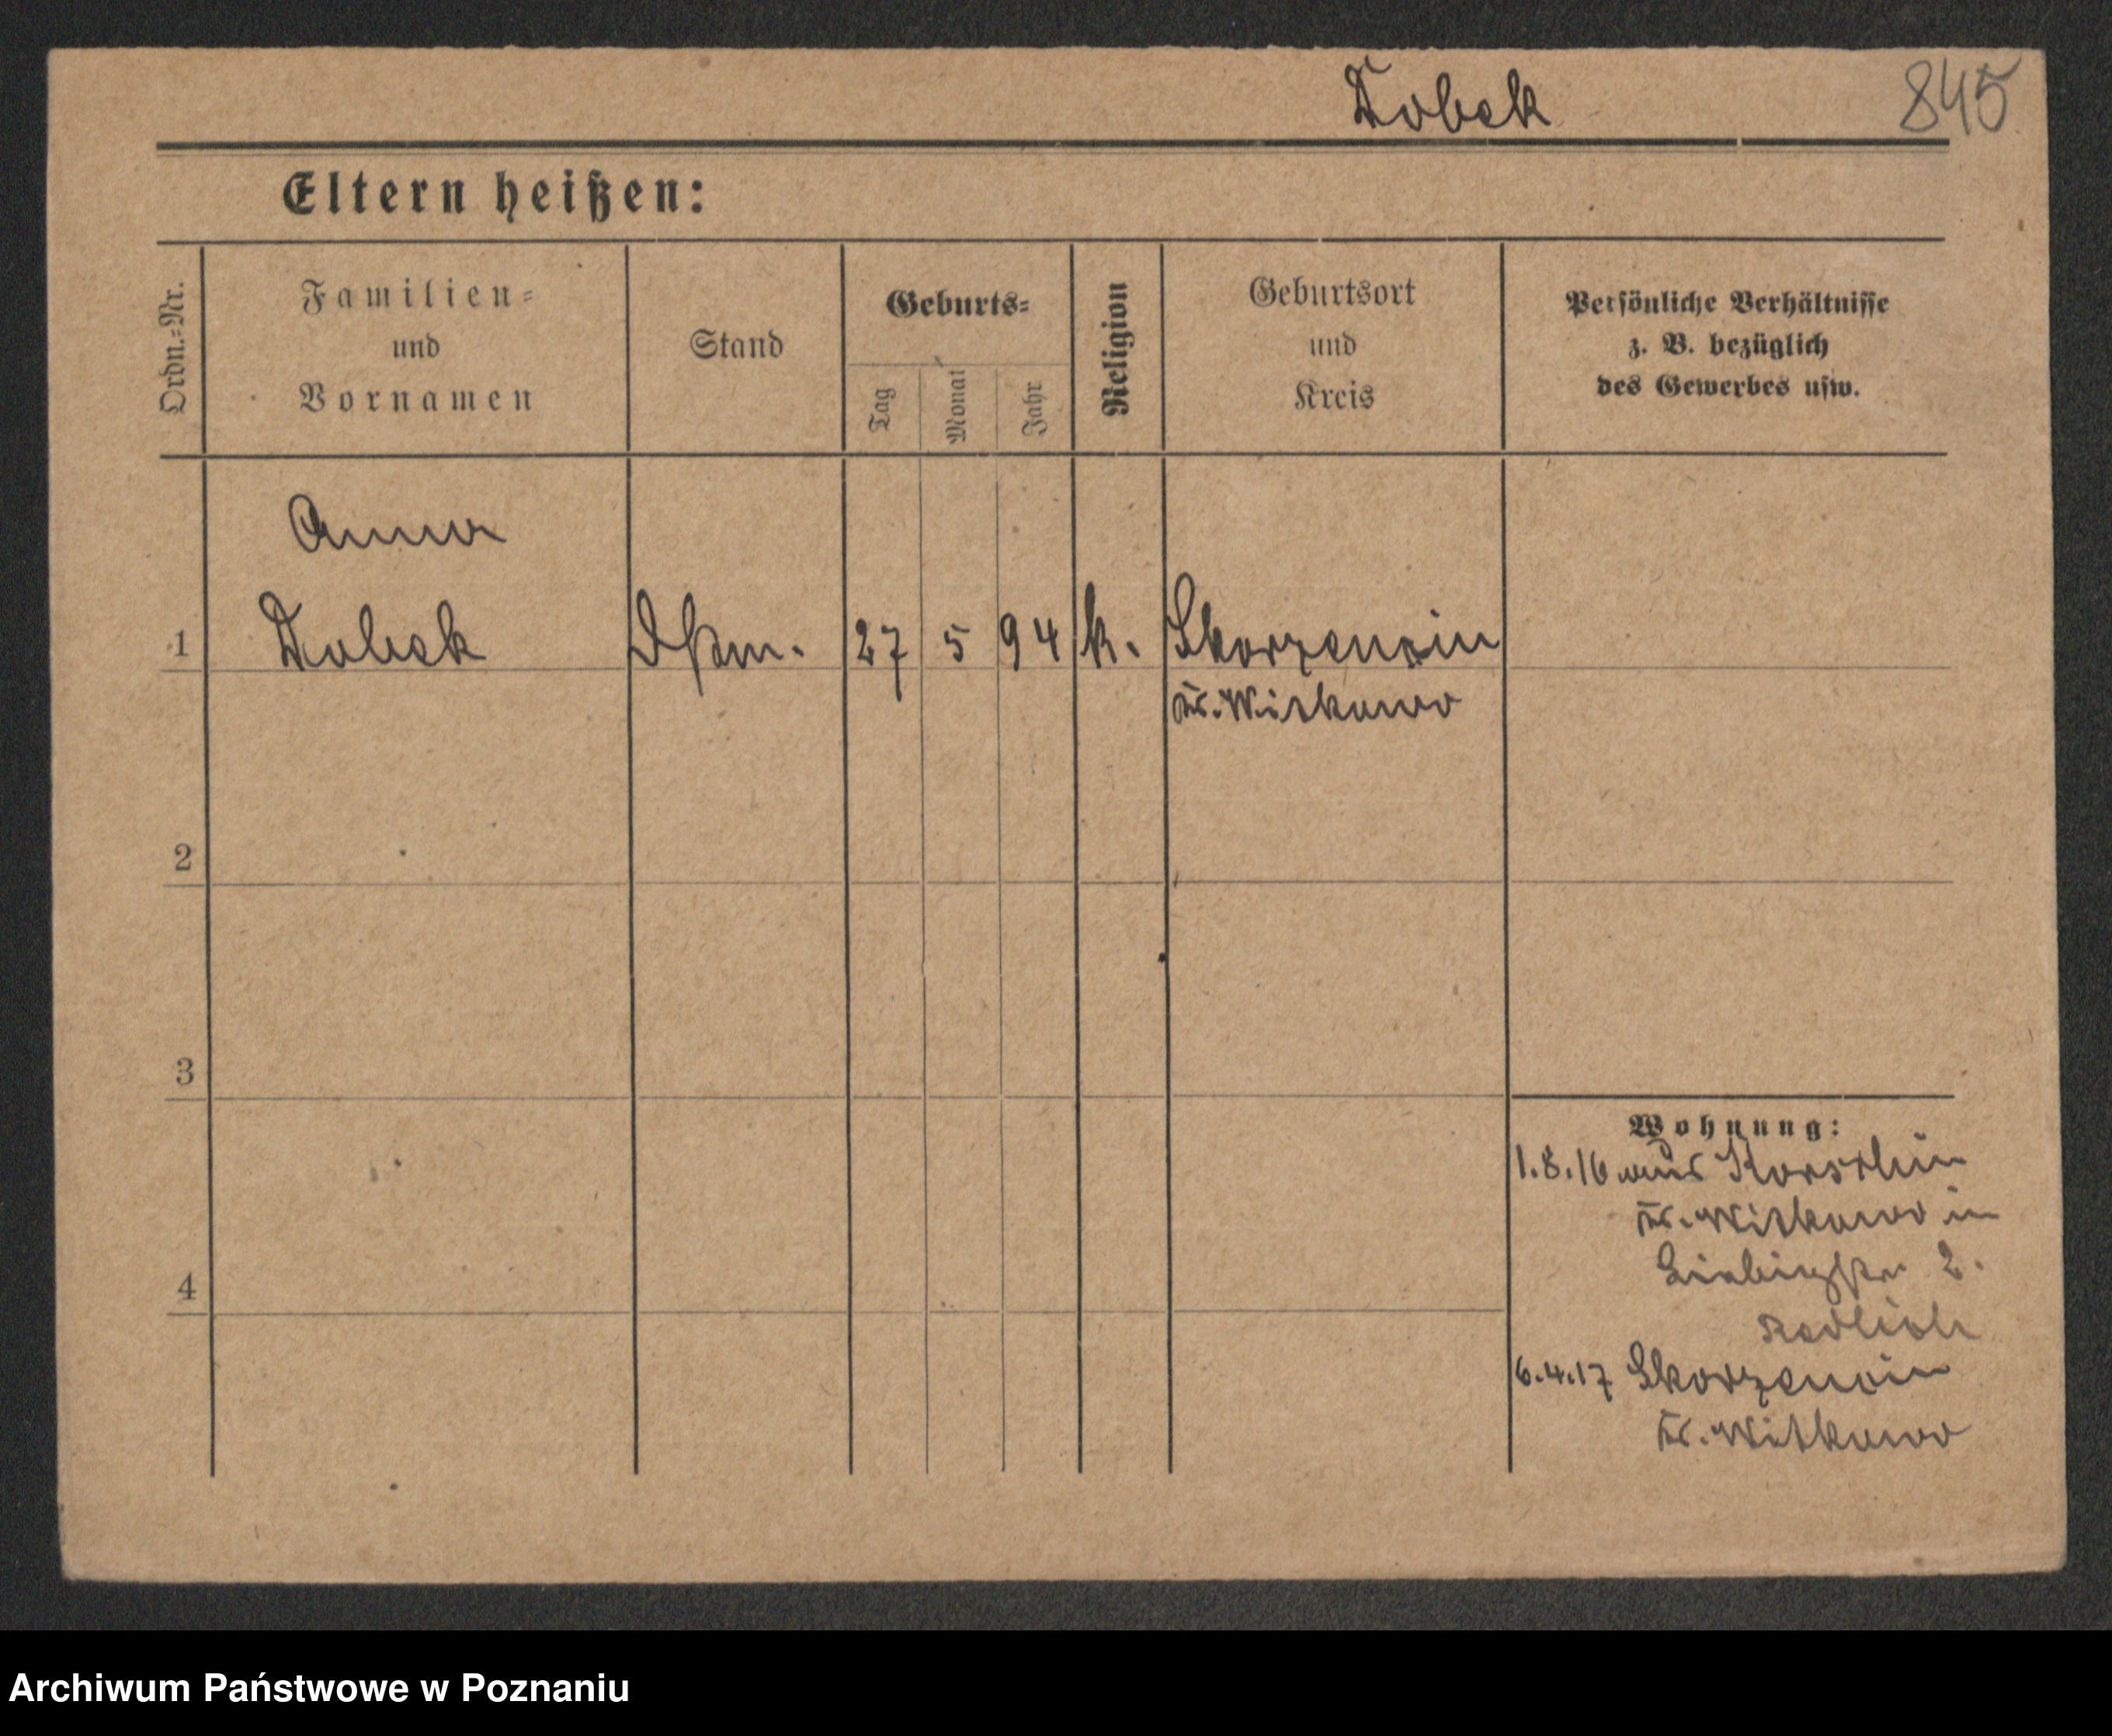 Dobek
845
Eltern heißen:
Ordn.=Nr.
Familien=
und
Vornamen
Stand
Geburts=
Tag
Monat
Jahr
Religion
Geburtsort
und
Kreis
Persönliche Verhältnisse
z. B. bezüglich
des Gewerbes usw.
Anna
1 Dobek Dstm. 27 5 94 k. Skorzencin
Kr. Witkowo
2
3
Wohnung:
1.8.16 aus
Kr. Witkowo in
4
Liebigstr. 2.
Redlich
6.4.17 Skorzencin
Kr. Witkowo
Archiwum Państwowe w Poznaniu